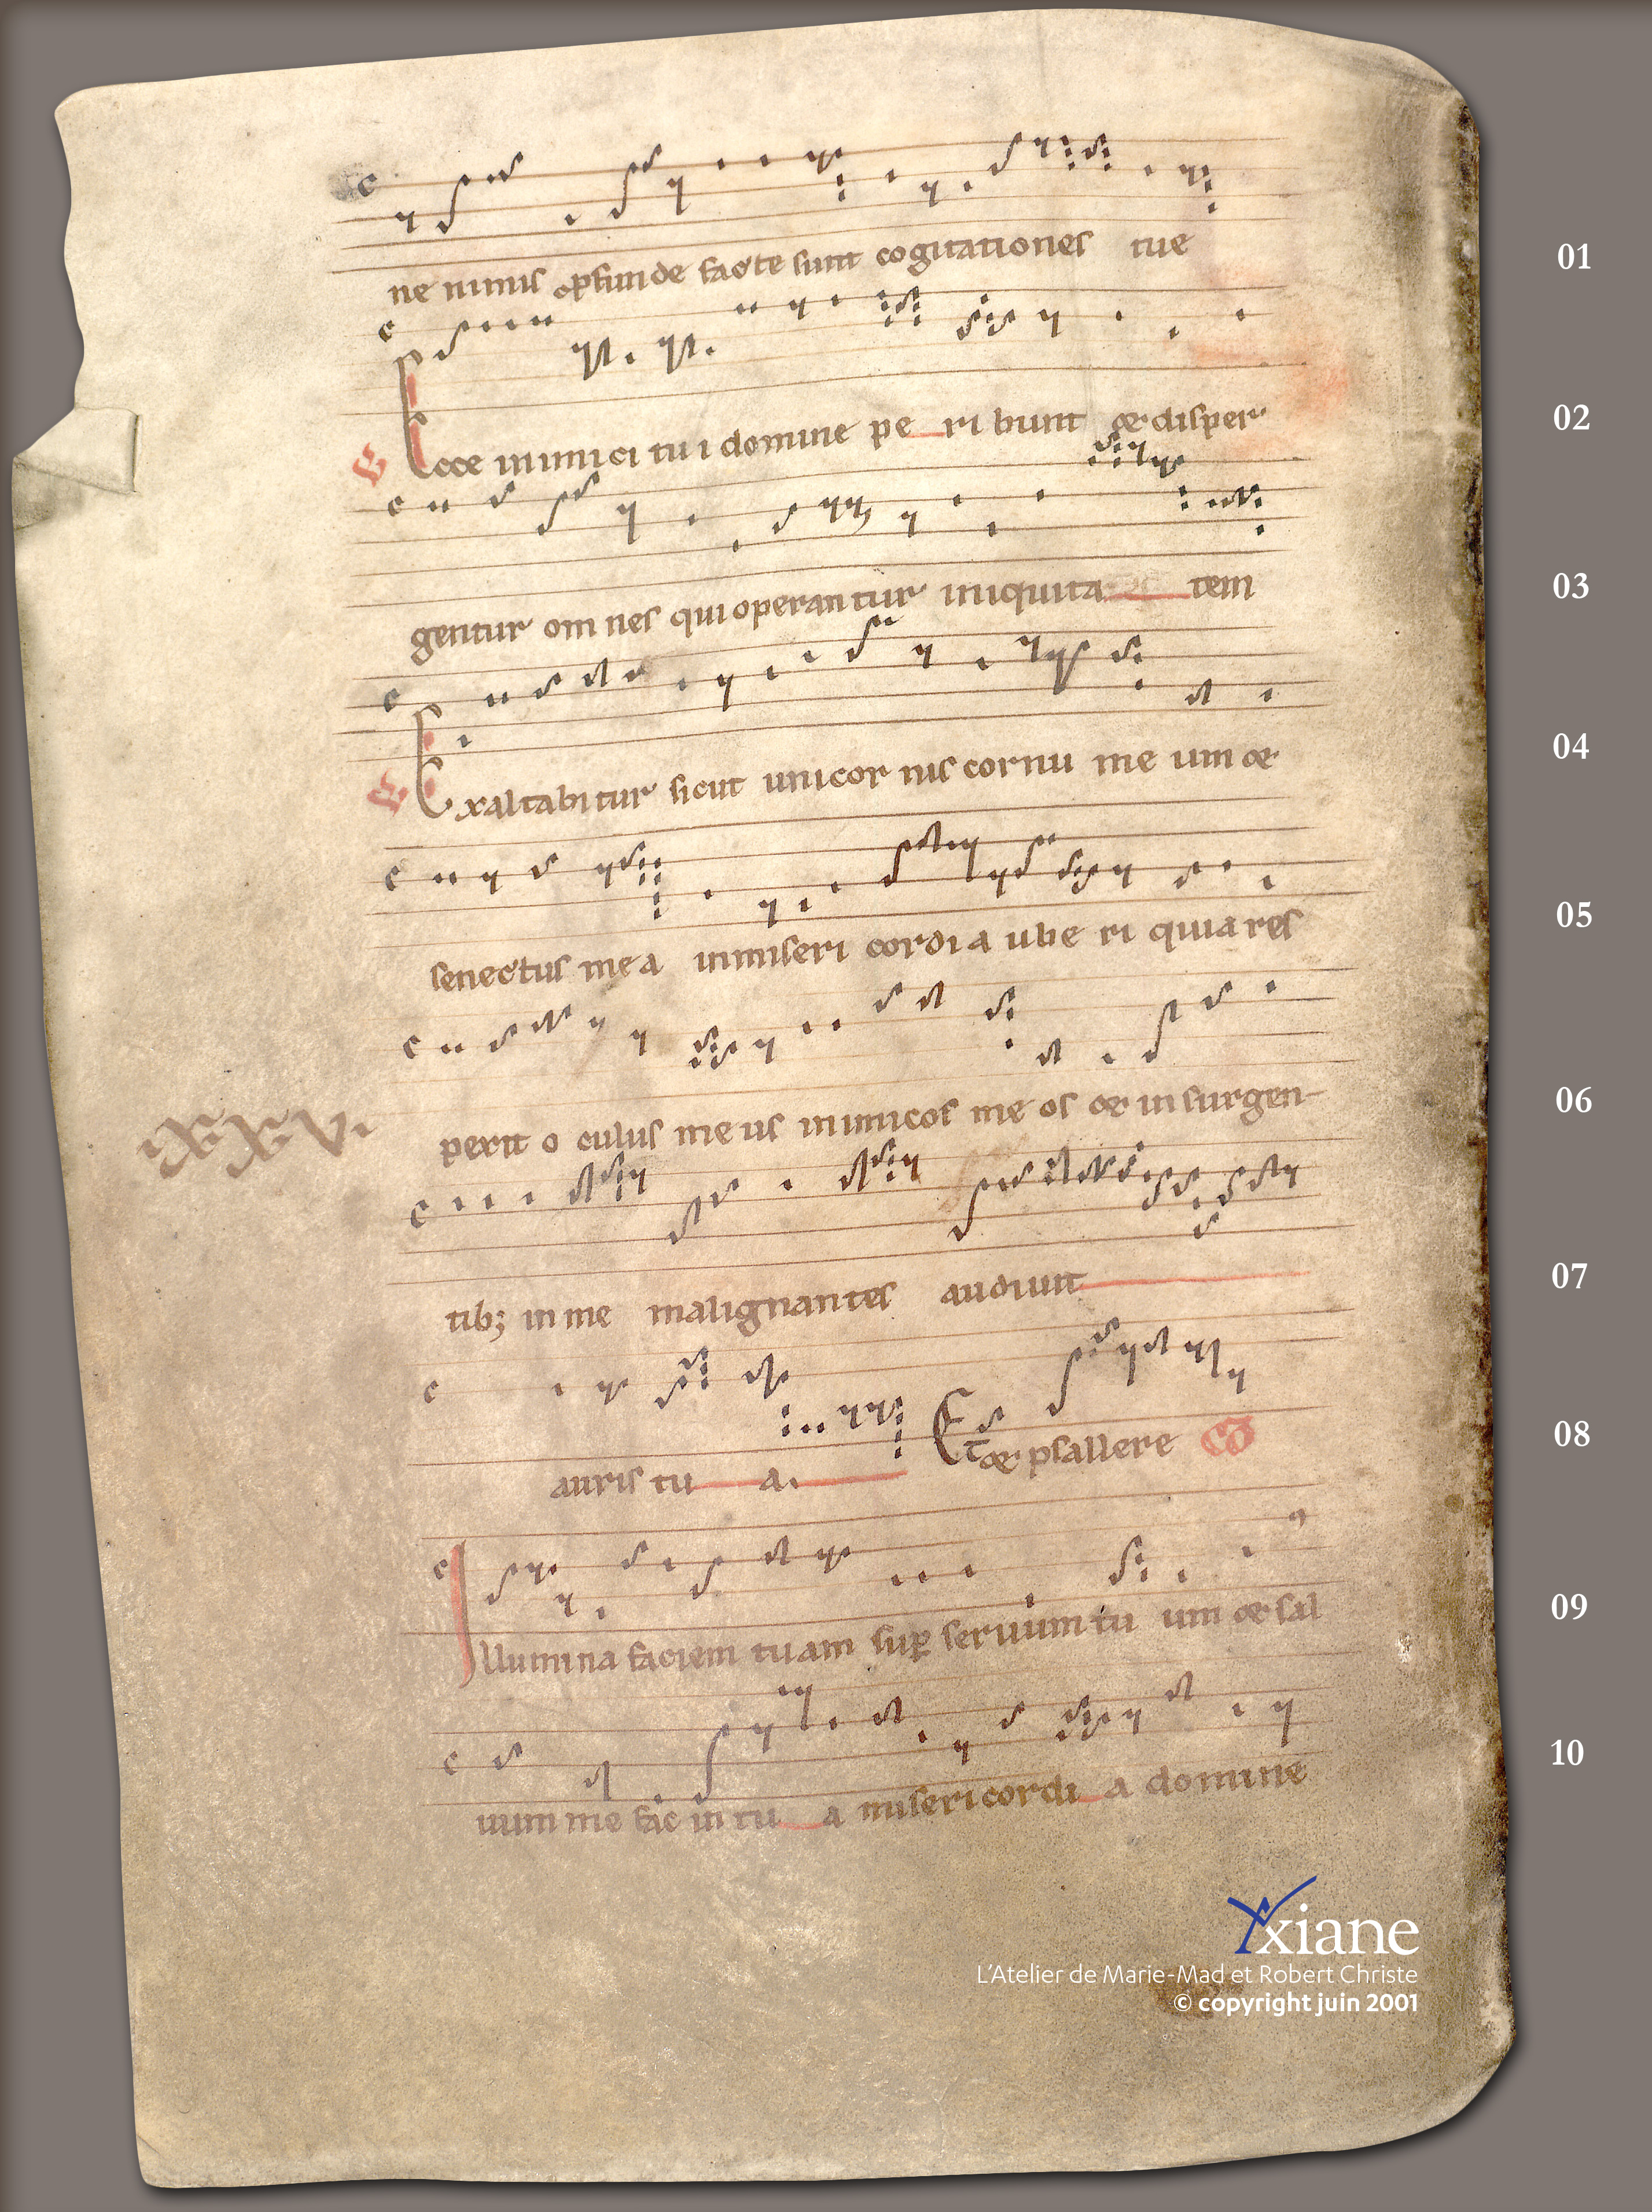 ne nimis ꝓfunde facte sunt cogitationes tue 01
Ecce inimici tui domine pe ri bunt & disper 02
gentur om nes qui operan tur iniquita tem 03
Exaltabitur sicut unicor nis cornu me um & 04
senectus me a inmiseri cordi a ube ri quia res 05
pexit o culus me us inimicos me os & in surgen- 06
ixxxvi
tibꝫ in me malignantes audiunt 07
auris tu a. Et & psallere CO 08
Illumina faciem tuam suꝑ seruum tu um & sal 09
uum me fac in tu a misericordi a domine 10
Axiane
L'Atelier de Marie-Mad et Robert Christe
© copyright juin 2001